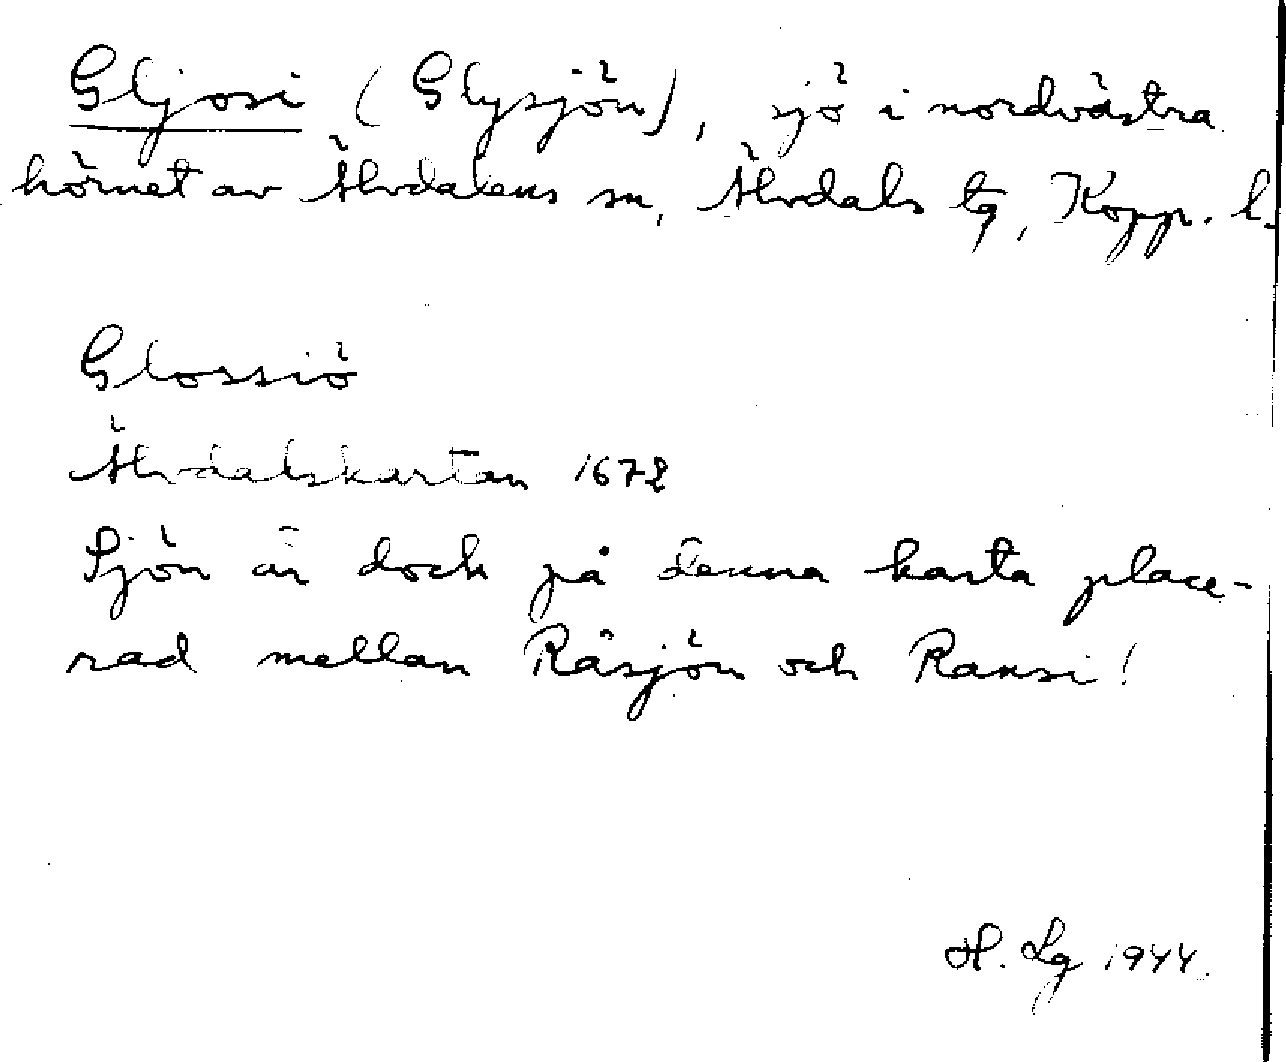 Gljosi (Glysjön), sjö i nordvästra
hörnet av Älvdalens sn, Älvdals tg, Kopp. l.
Glossiö
Älvdalskartan 1672
Sjön är doch på denna karta place-
rad mellan Råsjön och Ransi!
H. Lg 1944.